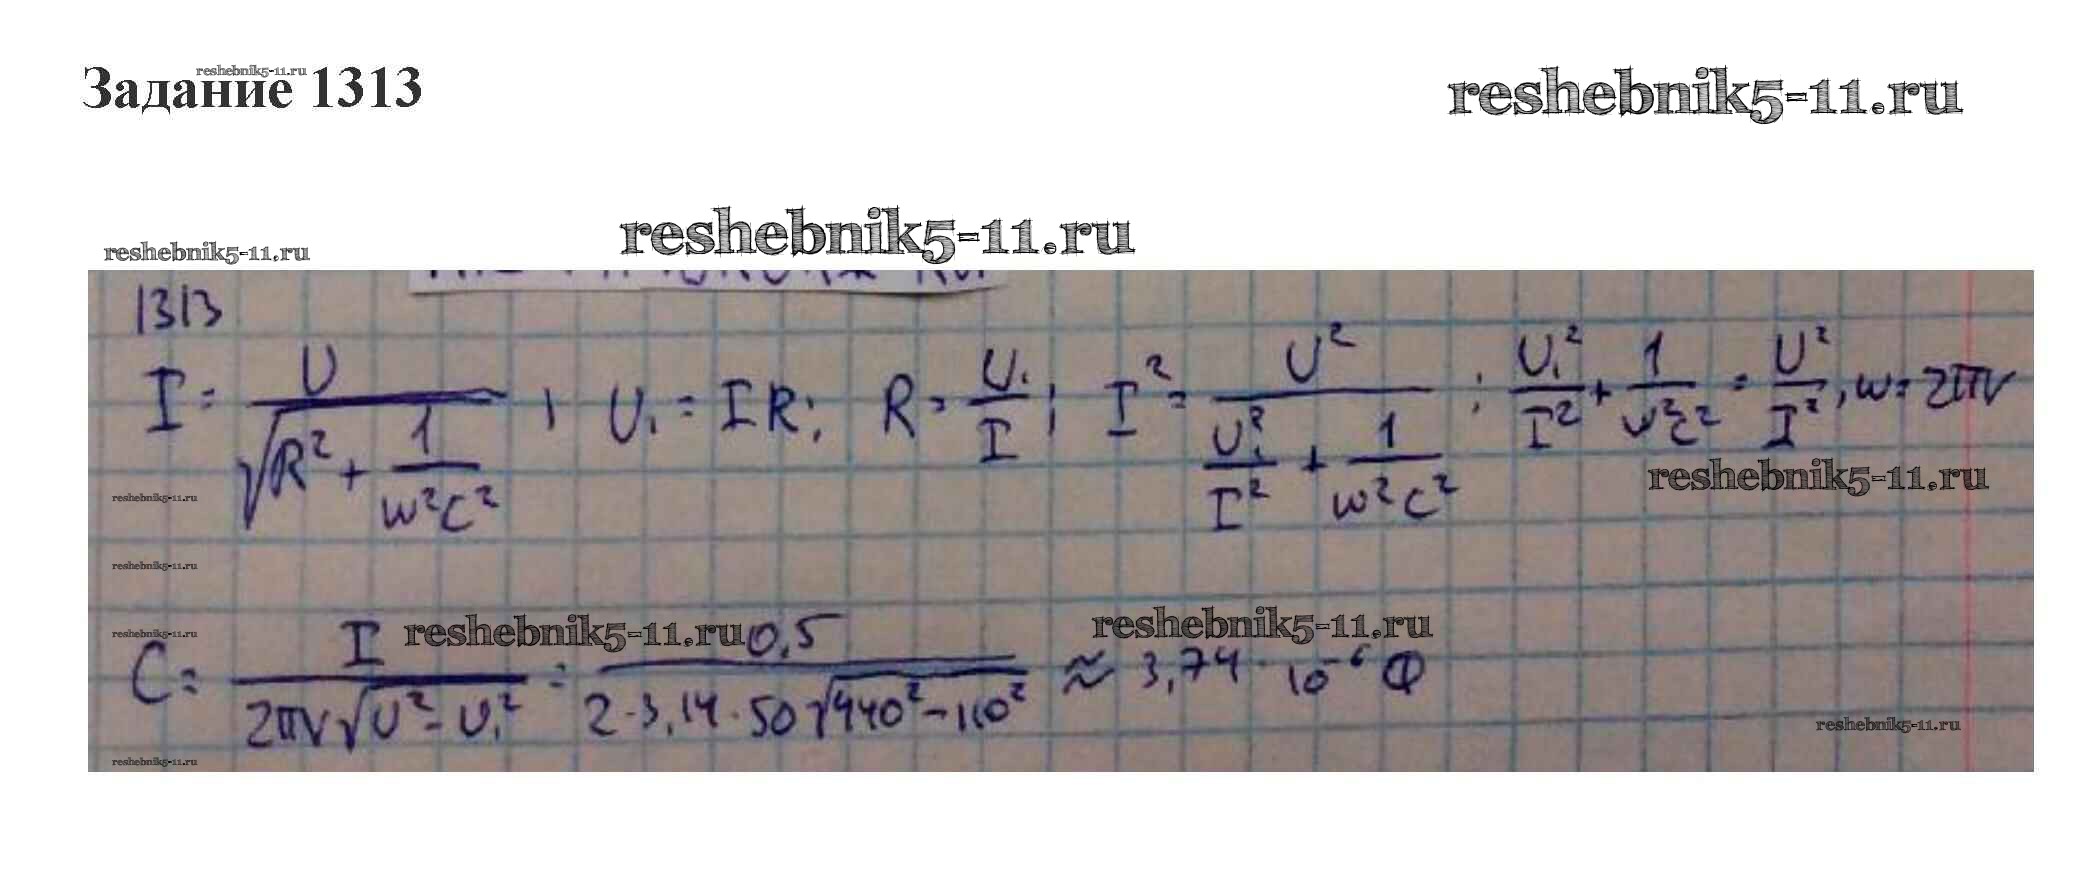 reshebnik5-11.ru
Задание 1313
reshebnik5-11.ru
reshebnik5-11.ru
reshebnik5-11.ru
1313
I = U / √(R² + 1/(w²c²)) ; U₁ = IR; R = U₁/I ; I² = U² / (U₁²/I² + 1/(w²c²)) ; U₁²/I² + 1/(w²c²) = U²/I², w = 2πν
reshebnik5-11.ru
reshebnik5-11.ru
reshebnik5-11.ru
reshebnik5-11.ru
reshebnik5-11.ru
reshebnik5-11.ru
C = I / (2πν√(U² - U₁²)) = 0,5 / (2·3,14·50√(440² - 110²)) ≈ 3,74 · 10⁻⁶ Ф
reshebnik5-11.ru
reshebnik5-11.ru